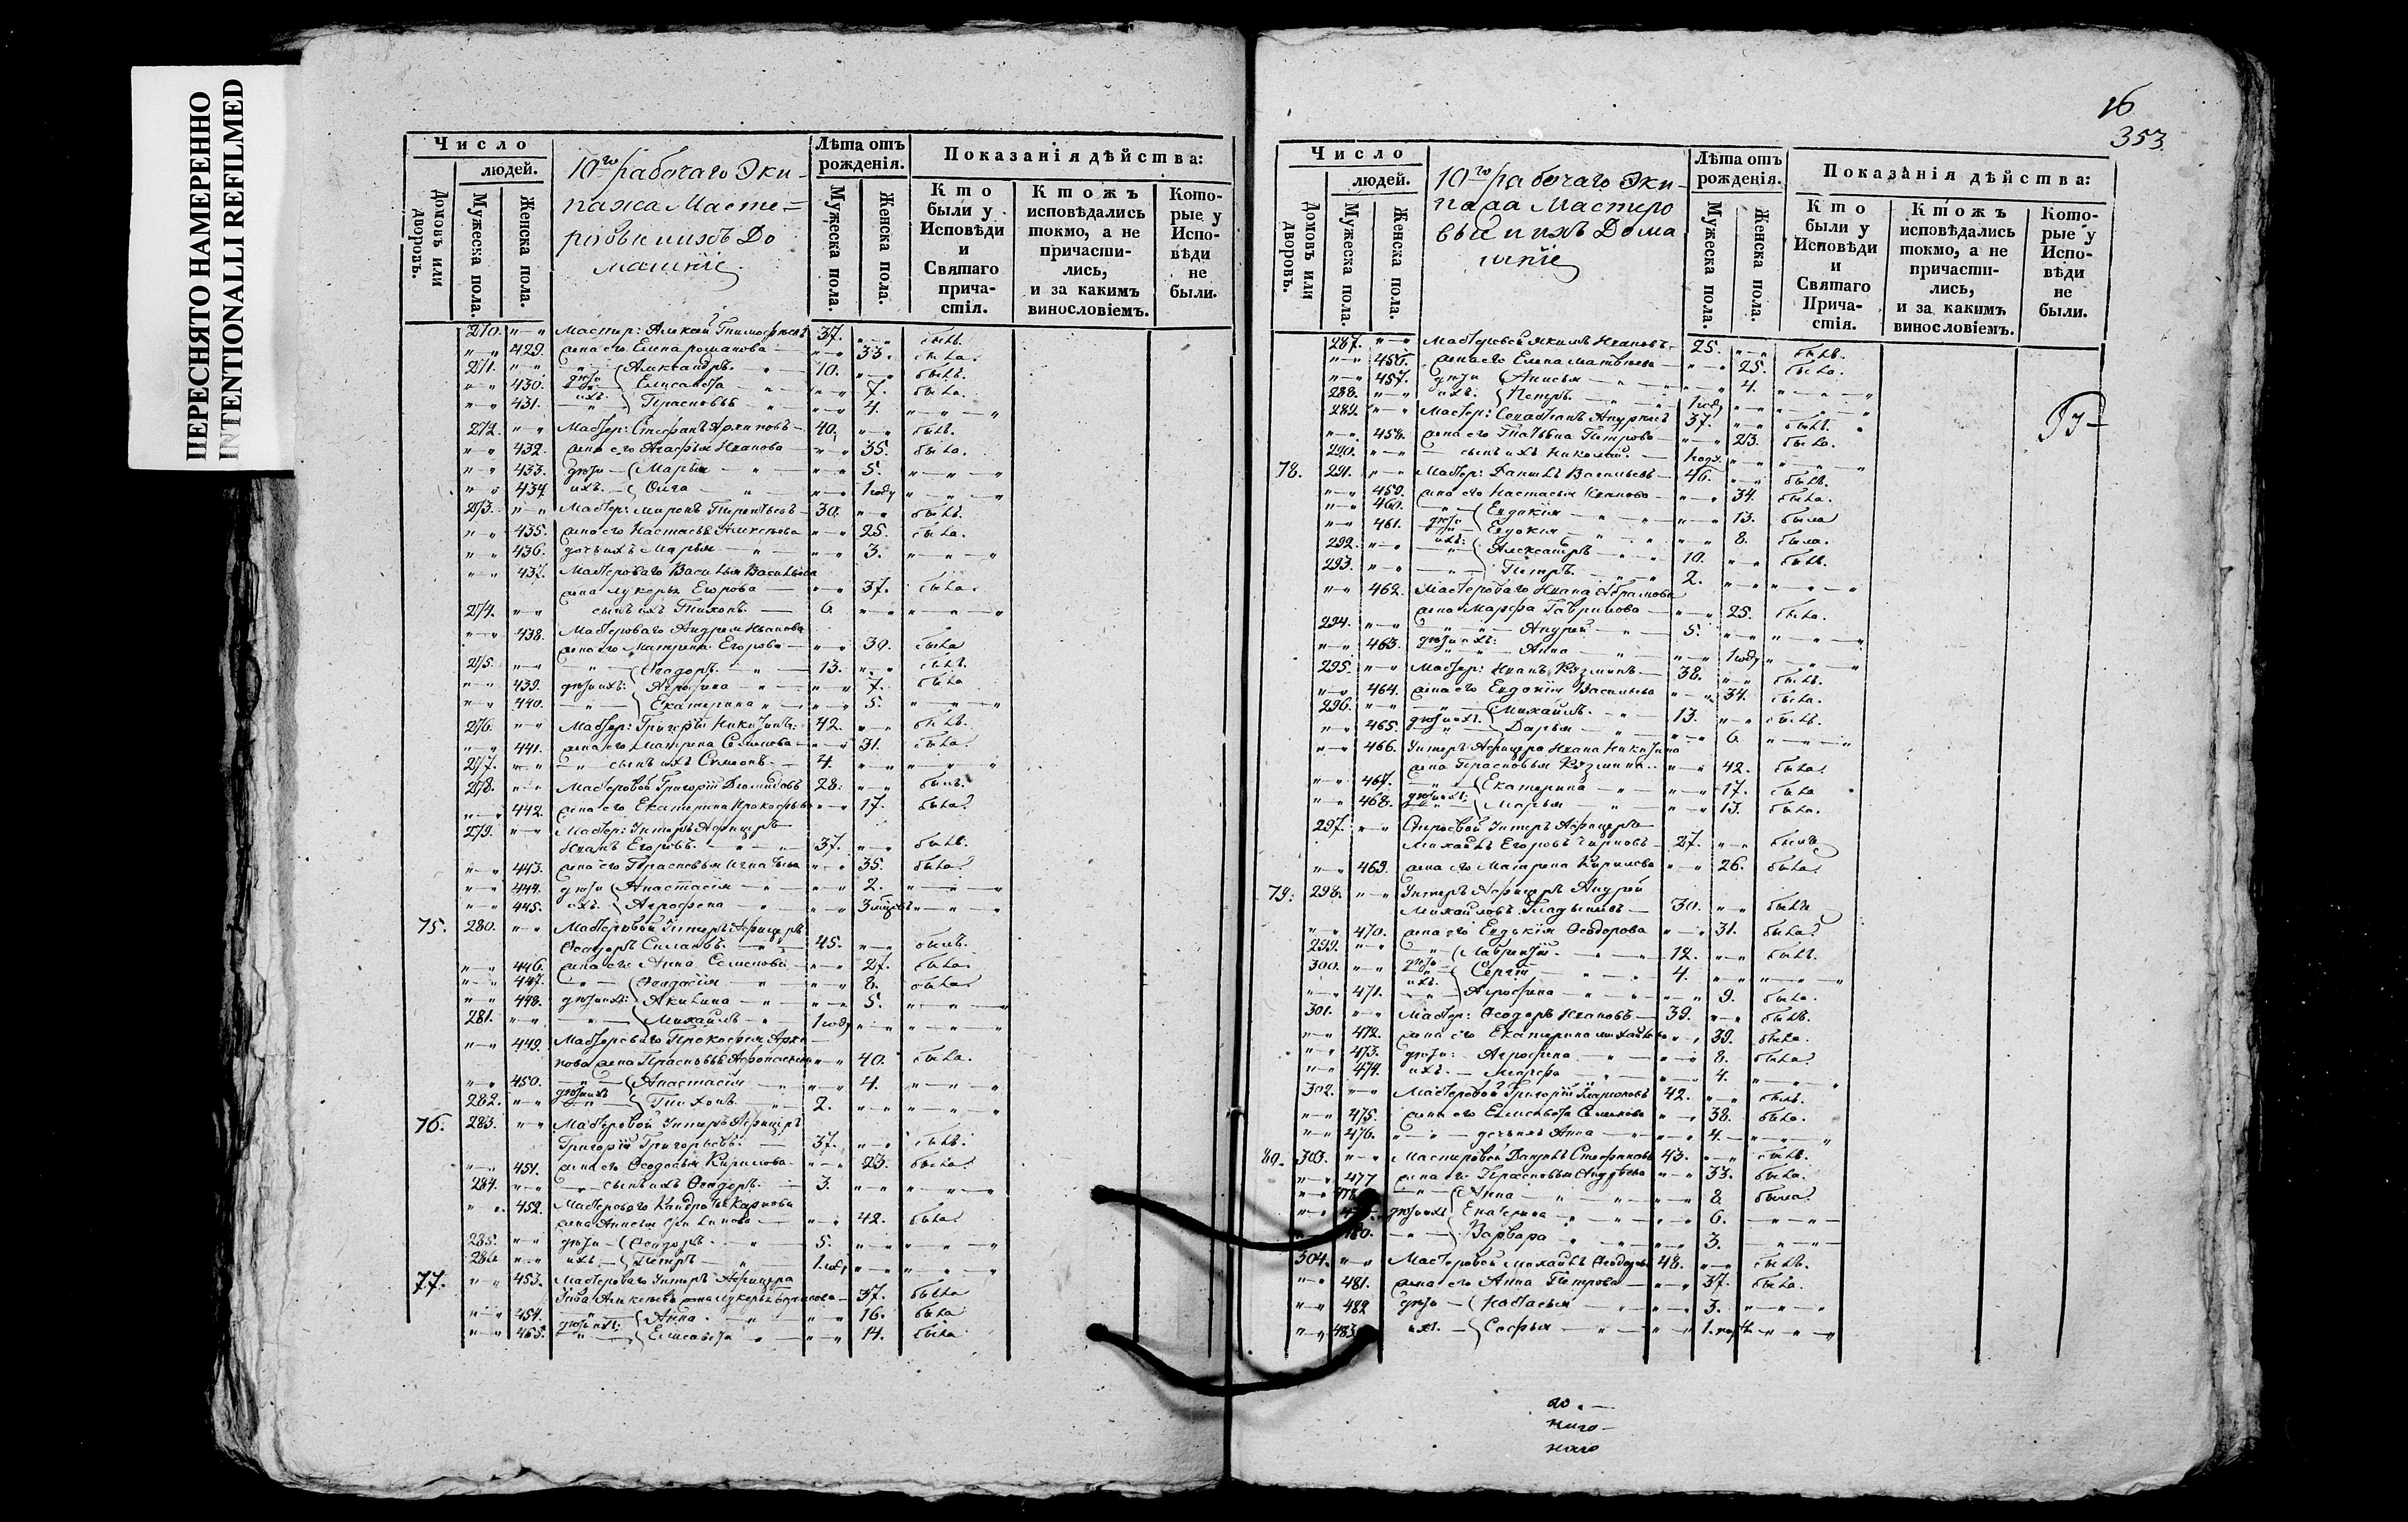 ПЕРЕСНЯТО НАМЕРЕННО
INTENTIONALLI REFILMED
Число
людей.
Домовъ или дворовъ.
Мужеска пола.
Женска пола.
10го рабочаго Эки-
пажа Масте=
ровые и ихъ До
машніе
Лѣта отъ рожденія.
Мужеска пола.
Женска пола.
Показанія дѣйства:
Кто были у Исповѣди и Святаго причастія.
Ктожъ исповѣдались токмо, а не причастились, и за какимъ винословіемъ.
Которые у Исповѣди не были.
270. Мастер: Алексѣй Тимофеевъ 37. былъ.
429. жена его Елена романова 33. была.
271. Александръ. 10. былъ.
430. дѣти Елисавета 7. была.
431. ихъ: Прасковья 4.
272. Мастер: Стефанъ Архиповъ 40. былъ.
432. жена его Агафья Иванова 35. была.
433. дѣти Марья 5.
434. ихъ. Ольга 1 году
273. Мастер: Миронъ 30. былъ.
435. жена его Настасья Алексѣева 25. была.
436. дочь ихъ Марья 3.
437. Мастероваго Василья Васильева
жена Лукерья Егорова 37. была.
274. сынъ ихъ Тихонъ. 6.
438. Мастероваго Андрея Иванова
жена его Матрена Егорова 30. была
275. Ѳеодоръ. 13. былъ.
439. дѣти ихъ: Агрофена 7. была
440. Екатерина 5.
276. Мастер: Григорій Никитинъ: 42. былъ.
441. жена его Матрена Семенова 31. была.
277. сынъ ихъ Симеонъ. 4.
278. Мастеровой Григорій 28. былъ.
442. жена его Екатерина Прокофьева 17. была.
279. Мастер: Унтеръ Афицеръ
Иванъ Егоровъ. 37. былъ.
443. жена его Прасковья Игнатьева 35. была.
444. дѣти Анастасія 2.
445. ихъ. Агрофена
75. 280. Мастеровой Унтеръ Афицеръ
Ѳеодоръ 45. былъ.
446. жена его Анна Семенова 27. была.
447. Ѳеодосія 8. была.
448. дѣти ихъ: Акилина 5.
281. Михайлъ 1 году
449. Мастероваго Прокофья Архи
пова жена Прасковья Афонасьева 40. была.
450. Анастасія 4.
282. дѣти ихъ Тихонъ. 2.
76. 283. Мастеровой Унтеръ Афицеръ
Григорій Григорьевъ. 37. былъ.
451. жена его Ѳеодосья Кирилова 23. была.
284. сынъ ихъ Ѳеодоръ. 3.
452. Мастероваго Кондратья Карпова
жена Анисья 42. была.
285. дѣти Ѳеодоръ. 5.
286. ихъ Петръ 1 году
77. 453. Мастероваго Унтеръ Афицера
жена Лукерья 37. была
454. Анна. 16. была
455. дѣти ихъ: Елисавета 14. была
16
353
Число
людей.
Домовъ или дворовъ.
Мужеска пола.
Женска пола.
10го рабочаго Эки-
пажа Мастеро
выя и ихъ Дома
шніе
Лѣта отъ рожденія.
Мужеска пола.
Женска пола.
Показанія дѣйства:
Кто были у Исповѣди и Святаго Причастія.
Ктожъ исповѣдались токмо, а не причастились, и за какимъ винословіемъ.
Которые у Исповѣди не были.
287. Мастеровой Якимъ Ивановъ 25. былъ.
456. жена его Елена Матвѣева 25. была.
457. дѣти Анисья 4.
288. ихъ. Петръ. 1 году
289. Мастер: 37. былъ.
458. жена его Татьяна Петрова 23. была.
290. сынъ ихъ Николай. 1 году.
78. 291. Мастер: Данилъ Васильевъ 46. былъ.
459. жена его Настасья Иванова 34. была.
460. Евдокія 13. была
461. дѣти Евдокія 8. была.
292. ихъ: Александръ 10. былъ.
293. Петръ. 2.
462. Мастероваго Ивана Абрамова
жена Марфа Гаврилова 25. была.
294. Андрей 5.
463. дѣти ихъ: Анна 1 году
295. Мастер: Иванъ Кузминъ 38. былъ.
464. жена его Евдокія Васильева 34. была.
296. Михайлъ. 13. былъ.
465. дѣти ихъ. Дарья 6.
466. Унтеръ Афицера Ивана Никитина
жена Прасковья Кузмина. 42. была.
467. Екатерина 17. была
468. дѣти ихъ: Марья 13. была.
297. Унтеръ Афицеръ
Михайлъ Егоровъ 27. былъ
469. жена его Матрена Кирилова 26. была.
79. 298. Унтеръ Афицеръ Андрей
Михайловъ 30. былъ
470. жена его Евдокія Ѳеодорова 31. была.
299. Лаврентій. 12. былъ.
300. дѣти Сергій 4.
471. ихъ. Агрофена 9. была.
301. Мастер: Ѳеодоръ Ивановъ 39. былъ.
472. жена его Екатерина Михайлова 39. была.
473. дѣти: Агрофена 8. была.
474. ихъ. Марфа 4.
302. Мастеровой Григорій 42. былъ.
475. жена его Елисавета Семенова 38. была.
476. дочь ихъ Анна 4.
80. 303. Мастеровой Данилъ Стефановъ 43. былъ.
477 жена его Прасковья Андреева 33. была.
478 Анна 8. была.
дѣти ихъ Екатерина 6.
480. Варвара 3.
304. Мастеровой Михайлъ Ѳеодоровъ 48. былъ.
481. жена его Анна Петрова 37. была.
482 дѣти Настасья 3.
483 ихъ. Софья